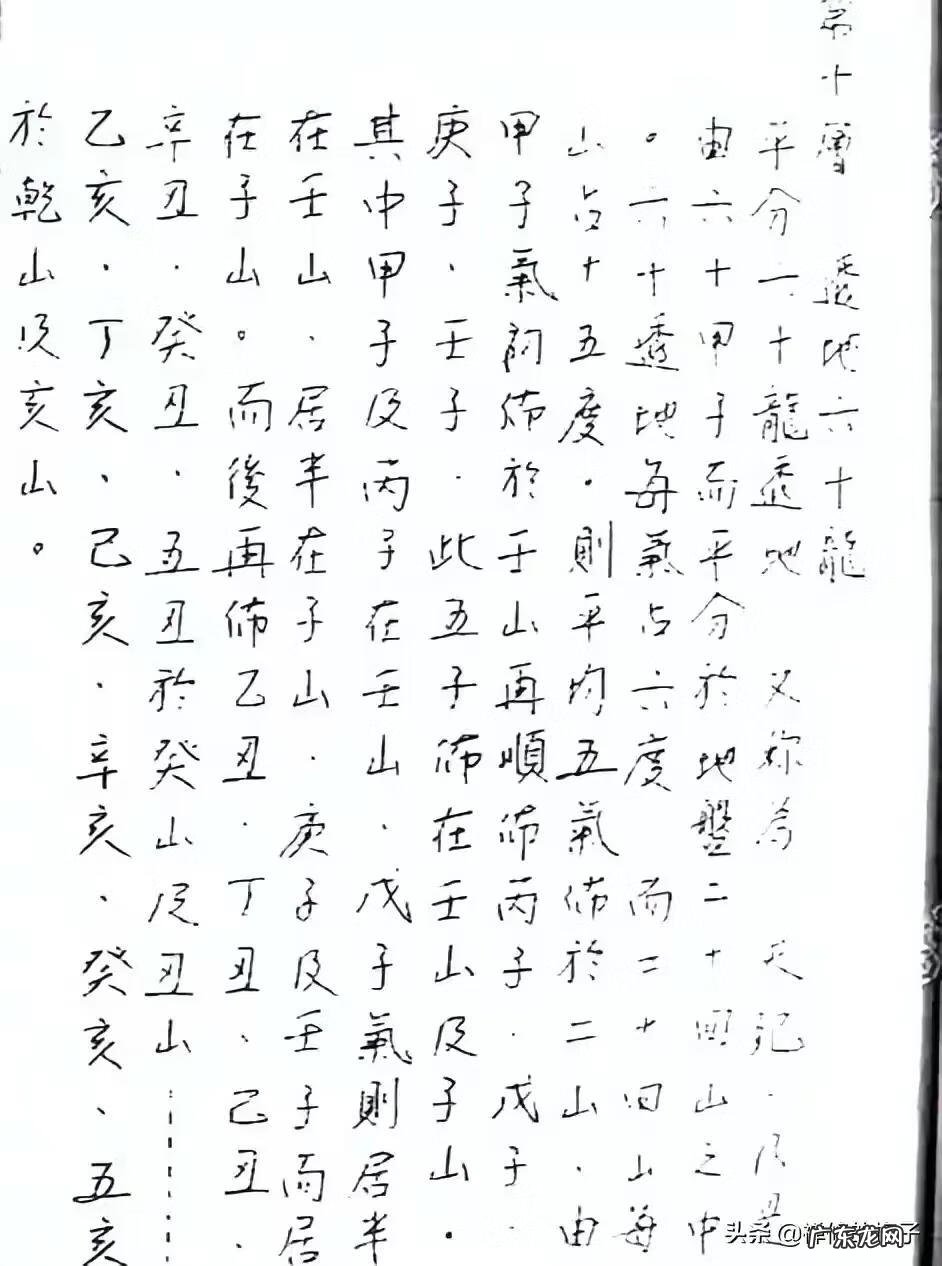 第十層 透地六十龍
平分六十龍透地 又稱為 天紀．
由六十甲子而平分於地盤二十四山之中
。六十透地每氣占六度 而二十四山每
山占十五度．則平均五氣佈於二山．由
甲子氣 佈於壬山再順佈丙子．戊子．
庚子．壬子．此五子佈在壬山及子山．
其中甲子及丙子在壬山．戊子氣則居半
在壬山．居半在子山．庚子及壬子而居
在子山。而後再佈乙丑．丁丑、己丑．
辛丑．癸丑．五丑於癸山及丑山……
乙亥．丁亥、己亥．辛亥、癸亥、五亥
於乾山及亥山。
头条@ 子
庐东龙网